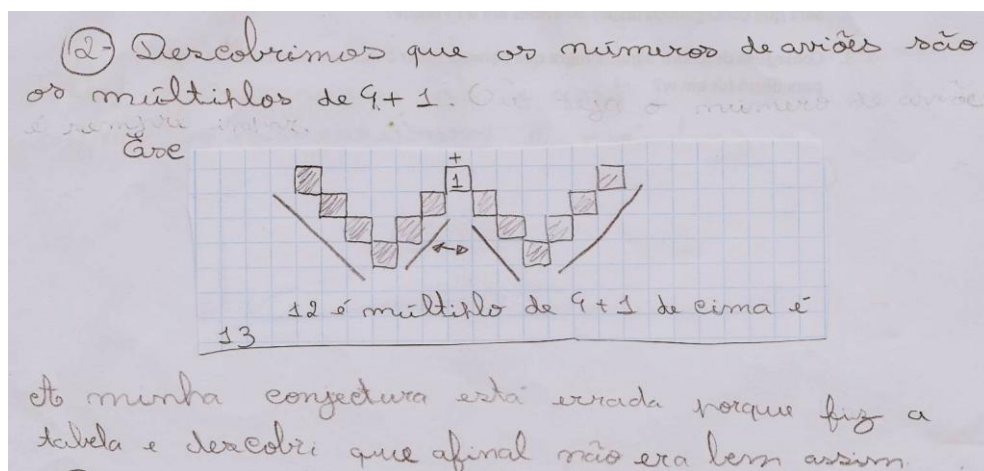 2- Descobrimos que os números de aviões são
os múltiplos de 4+1. Ou seja o número de aviões
é sempre ímpar.
+
1
12 é múltiplo de 4+1 de cima é
13
A minha conjectura está errada porque fiz a
tabela e descobri que afinal não era bem assim